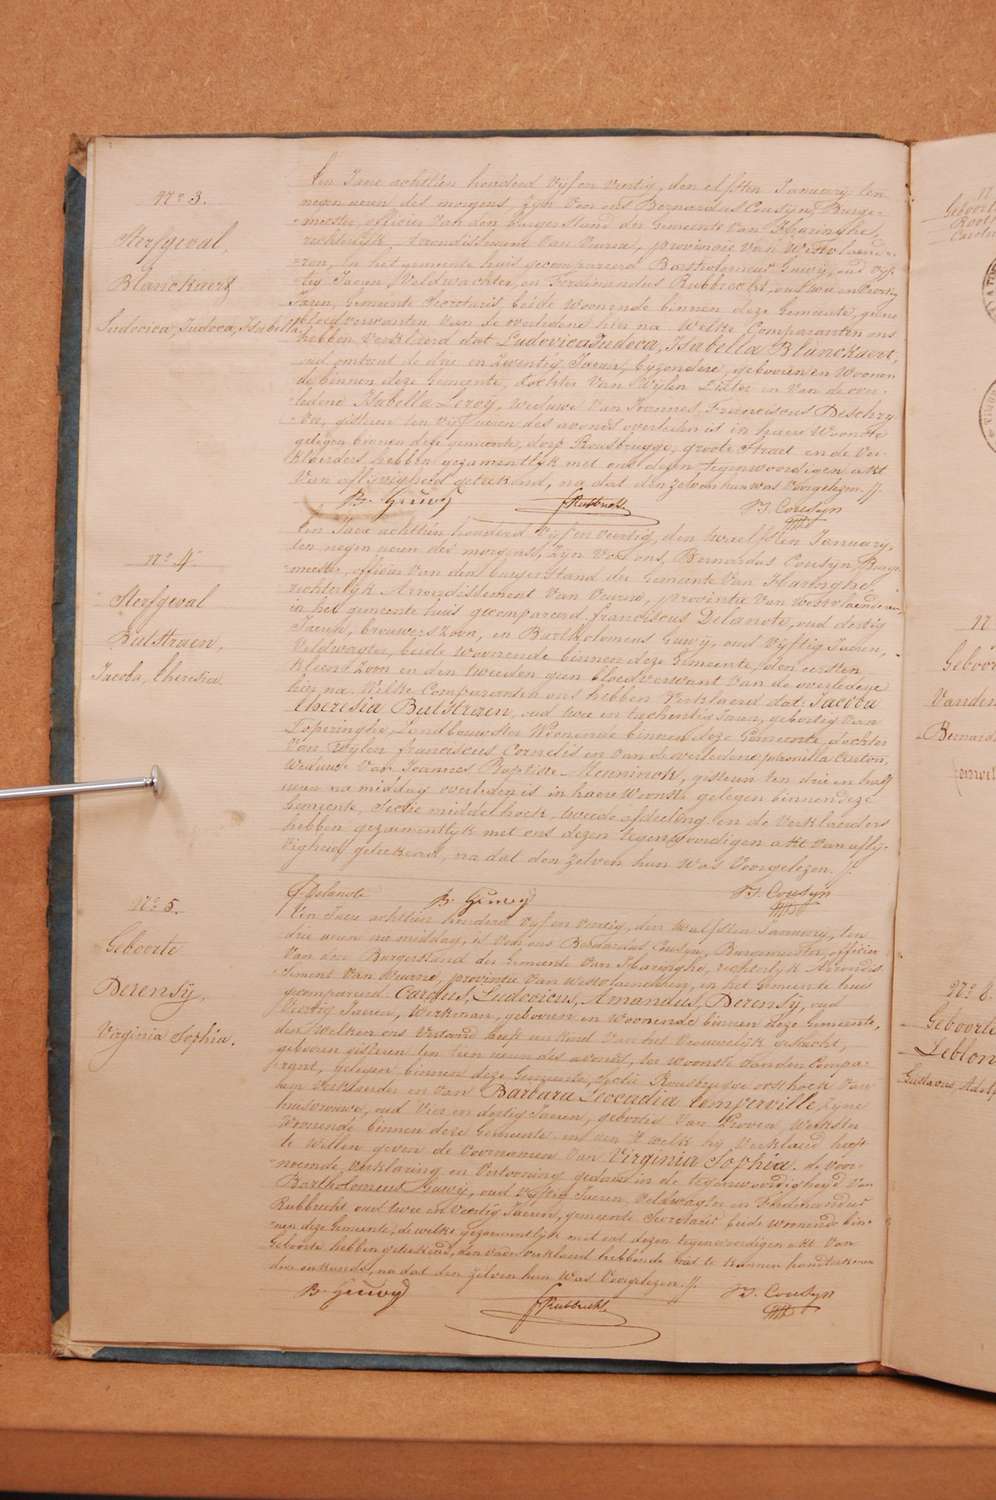 N° 3.
Sterfgeval,
Blanckaert
Ludovica, Judoca, Isabella,
Een Jaer achttien honderd vijf en veertig, den elfsten January ten
negen uren des morgens, zyn voor ons Bernardus Cousyn, Burge-
meester, officier van den burgerstand der gemeente van Haringhe,
rechterlijk arrondissement van Veurne, provincie van Westvlaende-
ren, in het gemeente huis gecompareerd Bartholomeus Guwij, oud vyf-
tig Jaeren, Veldwachter, en Ferdinandus Rubbrecht, oud twee en veertig
Jaeren, gemeente Secretaris beide woonende binnen deze Gemeente, geene
bloedverwanten van de overledene hier na welke Comparanten ons
hebben verklaerd dat Ludovica Judoca, Isabella Blanckaert,
oud omtrent de drie en zeventig Jaeren, byzondere, gebooren en woonen-
de binnen deze Gemeente, dochter van wylen Pieter en van de over-
ledene Isabella Leroy, weduwe van Joannes Franciscus Deschry-
ver, gisteren ten vyf uren des avonds overleden is in haere woonste
gelegen binnen deze gemeente, dorp Rousbrugge, groote straet en de Ver-
klaerders hebben gezamentlyk met ons dezen tegenwoordigen akt
van aflyvigheid geteekend, na dat den zelven hun was voorgelezen. //.
B. Guwy Rubbrecht B. Cousyn
N° 4
Sterfgeval
Bulstraen,
Jacoba, Theresia
Een Jaer achttien honderd vijf en veertig, den twaelfsten January,
ten negen uren des morgens, zyn voor ons, Bernardus Cousyn Burge-
meester, officier van den burgerstand der Gemeente van Haringhe,
rechterlyk Arrondissement van Veurne, provintie van Westvlaenderen,
in het gemeente huis gecompareerd franciscus Delanote, oud dertig
Jaeren, brouwers zoon, en Bartholomeus Guwij, oud vyftig Jaeren,
Veldwagter, beide woonende binnen deze Gemeente, den eersten
klein zoon en den tweeden geen bloedverwant van de overledene
hier na, welke Comparanten ons hebben verklaerd dat, Jacoba
Theresia Bulstraen, oud twee en tachentig Jaeren, geboortig van
Poperinghe, Landbouwster woonende binnen deze Gemeente dochter
van wylen franciscus Cornelis en van de overledene
Weduwe van Joannes Baptiste gisteren ten drie en half
uren na middag overleden is in haere woonste gelegen binnen deze
Gemeente, Sectie middelhoek, tweede afdeeling en de verklaerders
hebben gezamentlyk met ons dezen tegenwoordigen akt van afly-
vigheid geteekend, na dat den zelven hun was voorgelezen. //.
f Delanote B. Guwy B. Cousyn
N° 5.
Geboorte
Derensy,
Virginia Sophia.
Een Jaer achttien honderd vyf en veertig, den twalfsten January, ten
drie uren na middag, is voor ons Bernardus Cousyn, Burgemeester, officier
van den Burgerstand der Gemeente van Haringhe, rechterlyk Arrondis-
sement van Veurne, provintie van Westvlaenderen, in het Gemeente huis
gecompareerd Carolus, Ludovicus, Amandus, Derensy, oud
veertig Jaeren, Werkman, gebooren en woonende binnen deze Gemeente,
den welken ons vertoond heeft een kind van het vrouwelyk geslacht,
gebooren gisteren ten tien uren des avonds, ter woonste van den Compa-
rant, gelegen binnen deze Gemeente, sectie Rousbrugge oosthoek van
hem verklaerder en van Barbara Leocadia Temperville, zyne
huisvrouwe, oud vier en dertig Jaeren, geboortig van Proven, Werkster
woonende binnen deze Gemeente en aen 't welk hy verklaerd heeft
te willen geven de voornamen van Virginia Sophia. de voor-
noemde verklaring en vertooning gedaen in de tegenwoordigheyd van
Bartholomeus Guwij, oud vyftig Jaeren, Veldwagter en Ferdinandus
Rubbrecht oud twee en veertig Jaeren, gemeente Secretaris beide woonende bin-
nen deze Gemeente, de welke gezamentlyk met ons dezen tegenwoordigen akt van
Geboorte hebben geteekend, den vader verklaerd hebbende niet te kunnen handteekenen
door onkunde, na dat den zelven hun was voorgelezen. //.
B. Guwy Rubbrecht B. Cousyn
Geboort
Carolin
N
Geboor
Vanden
Bernard
N° 6.
Geboorte
Leblon
Gustavus Adolp